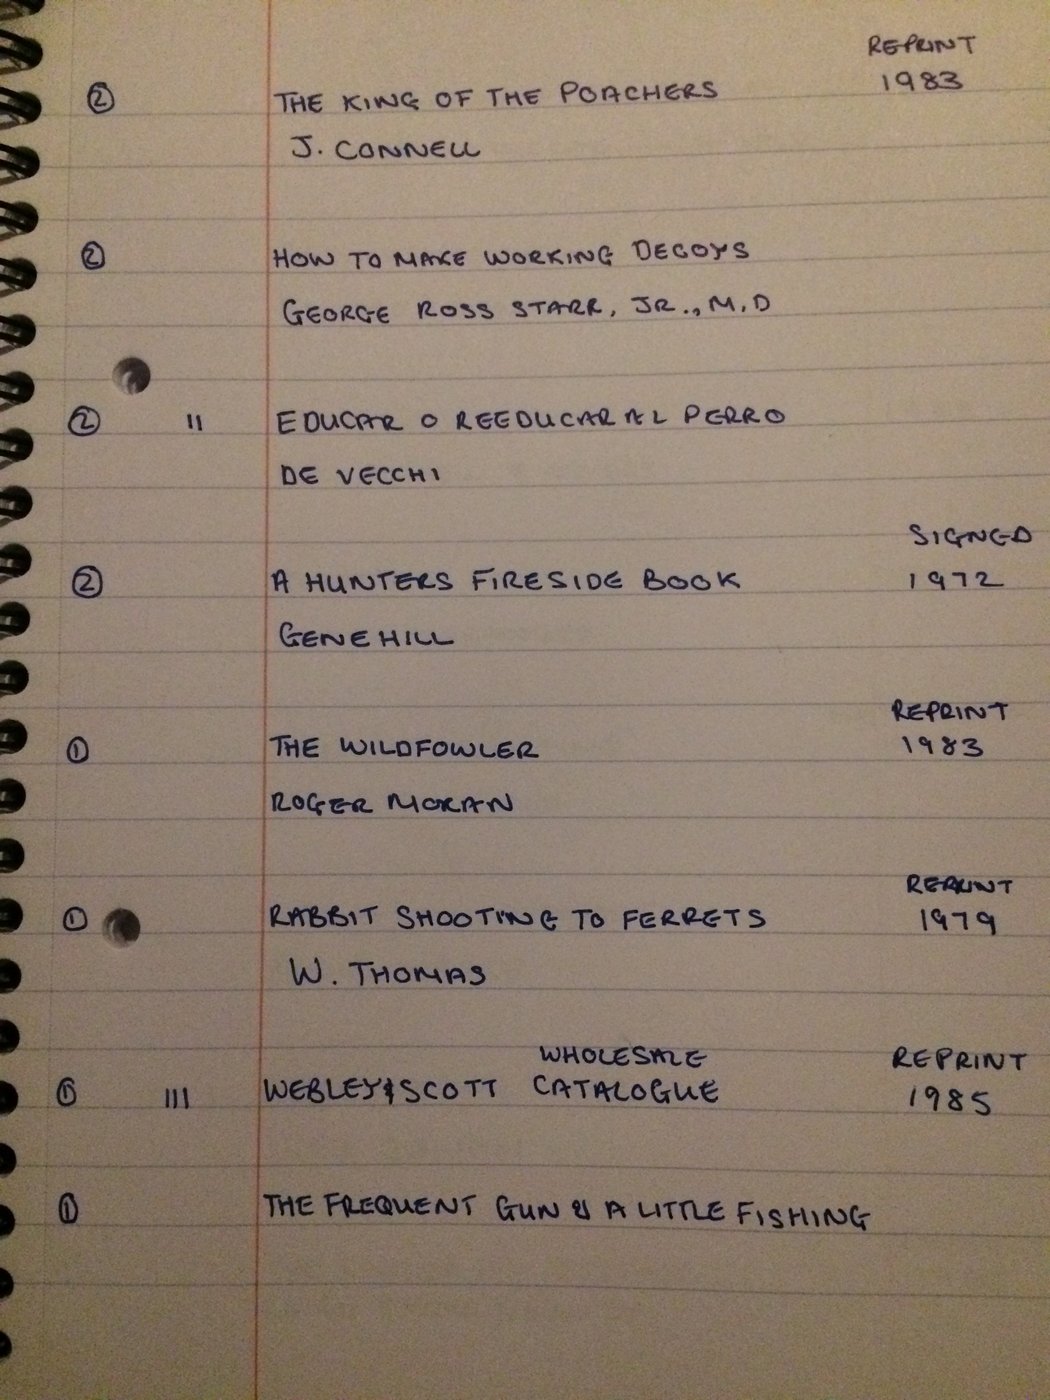 REPRINT
② THE KING OF THE POACHERS 1983
J. CONNELL
② HOW TO MAKE WORKING DECOYS
GEORGE ROSS STARR, JR., M.D
② II EDUCAR O REEDUCAR AL PERRO
DE VECCHI
SIGNED
② A HUNTERS FIRESIDE BOOK 1972
GENE HILL
REPRINT
① THE WILDFOWLER 1983
ROGER MORAN
REPRINT
① RABBIT SHOOTING TO FERRETS 1979
W. THOMAS
WHOLESALE REPRINT
① III WEBLEY & SCOTT CATALOGUE 1985
① THE FREQUENT GUN & A LITTLE FISHING